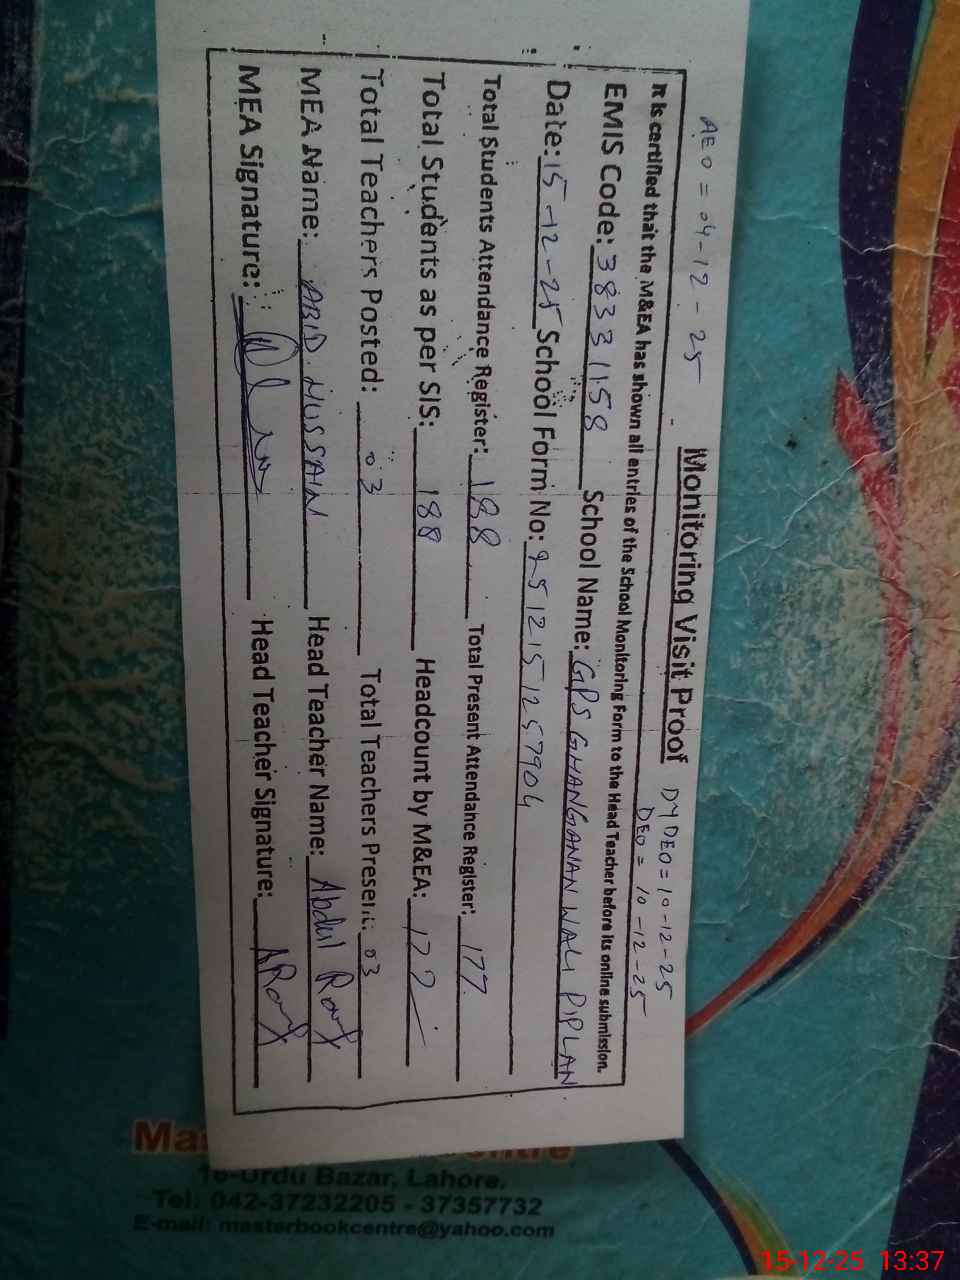 AEO = 04-12-25
Monitoring Visit Proof
DY DEO = 10-12-25
DEO = 10-12-25
It is certified that the M&EA has shown all entries of the School Monitoring Form to the Head Teacher before its online submission.
EMIS Code: 38331158 School Name: GPS GHANGANAN WALI PIPLAN
Date: 15-12-25 School Form No: 2512151257904
Total Students Attendance Register: 188 Total Present Attendance Register: 177
Total Students as per SIS: 188 Headcount by M&EA: 177
Total Teachers Posted: 03 Total Teachers Present: 03
MEA Name: ABID HUSSAIN Head Teacher Name: Abdul Rauf
MEA Signature: Head Teacher Signature: ARauf
16-Urdu Bazar, Lahore.
Tel: 042-37232205 - 37357732
E-mail: masterbookcentre@yahoo.com
15-12-25 13:37